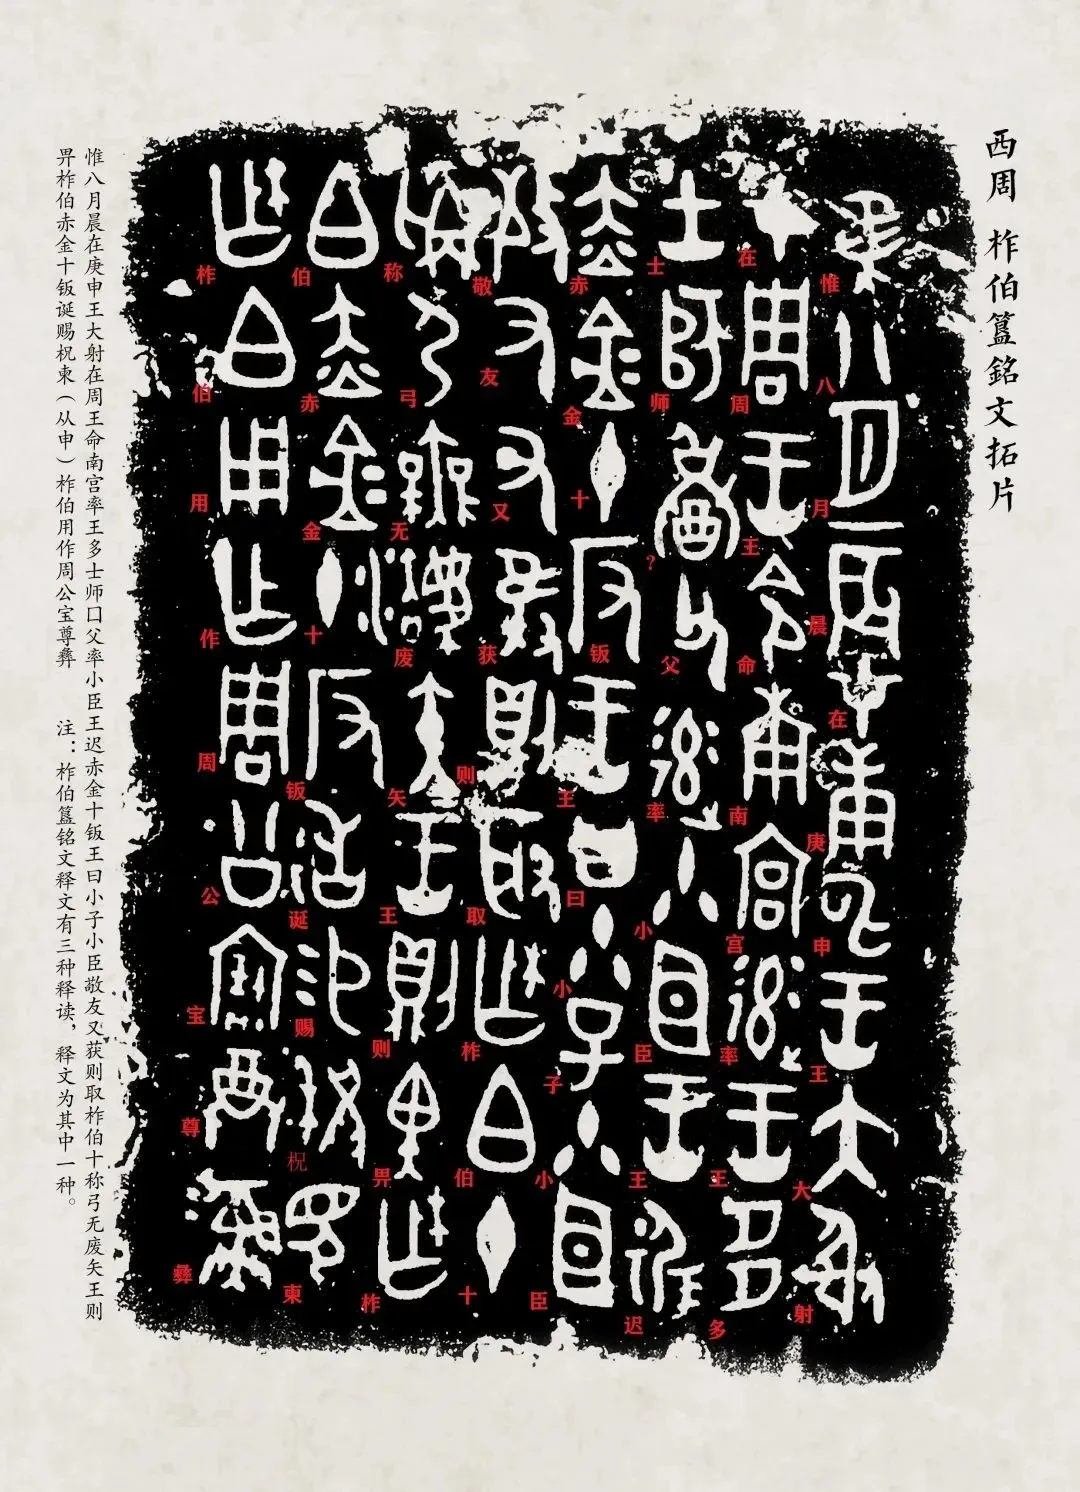 西周 柞伯簋銘文拓片
惟八月晨在庚申王大射
在周王命南宫率王多
士师？父率小臣王迟
赤金十钣王曰小子小臣
敬友又获则取柞伯十
称弓无废矢王则畀柞
伯赤金十钣诞赐柷柬
柞伯用作周公宝尊彝
惟八月晨在庚申王大射在周王命南宫率王多士师口父率小臣王迟赤金十钣王曰小子小臣敬友又获则取柞伯十称弓无废矢王则
畀柞伯赤金十钣诞赐柷柬（从申）柞伯用作周公宝尊彝 注：柞伯簋铭文释文有三种释读，释文为其中一种。